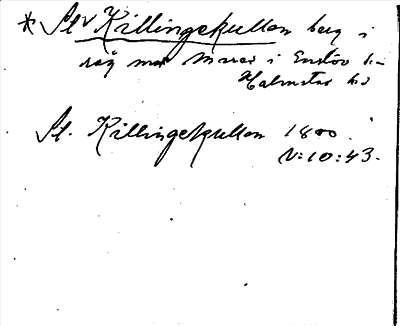 * St. Killingekullen berg i
råg med i Enslöv sn
Halmstad hd
St. Killingekullen 1800.
V:10:43.